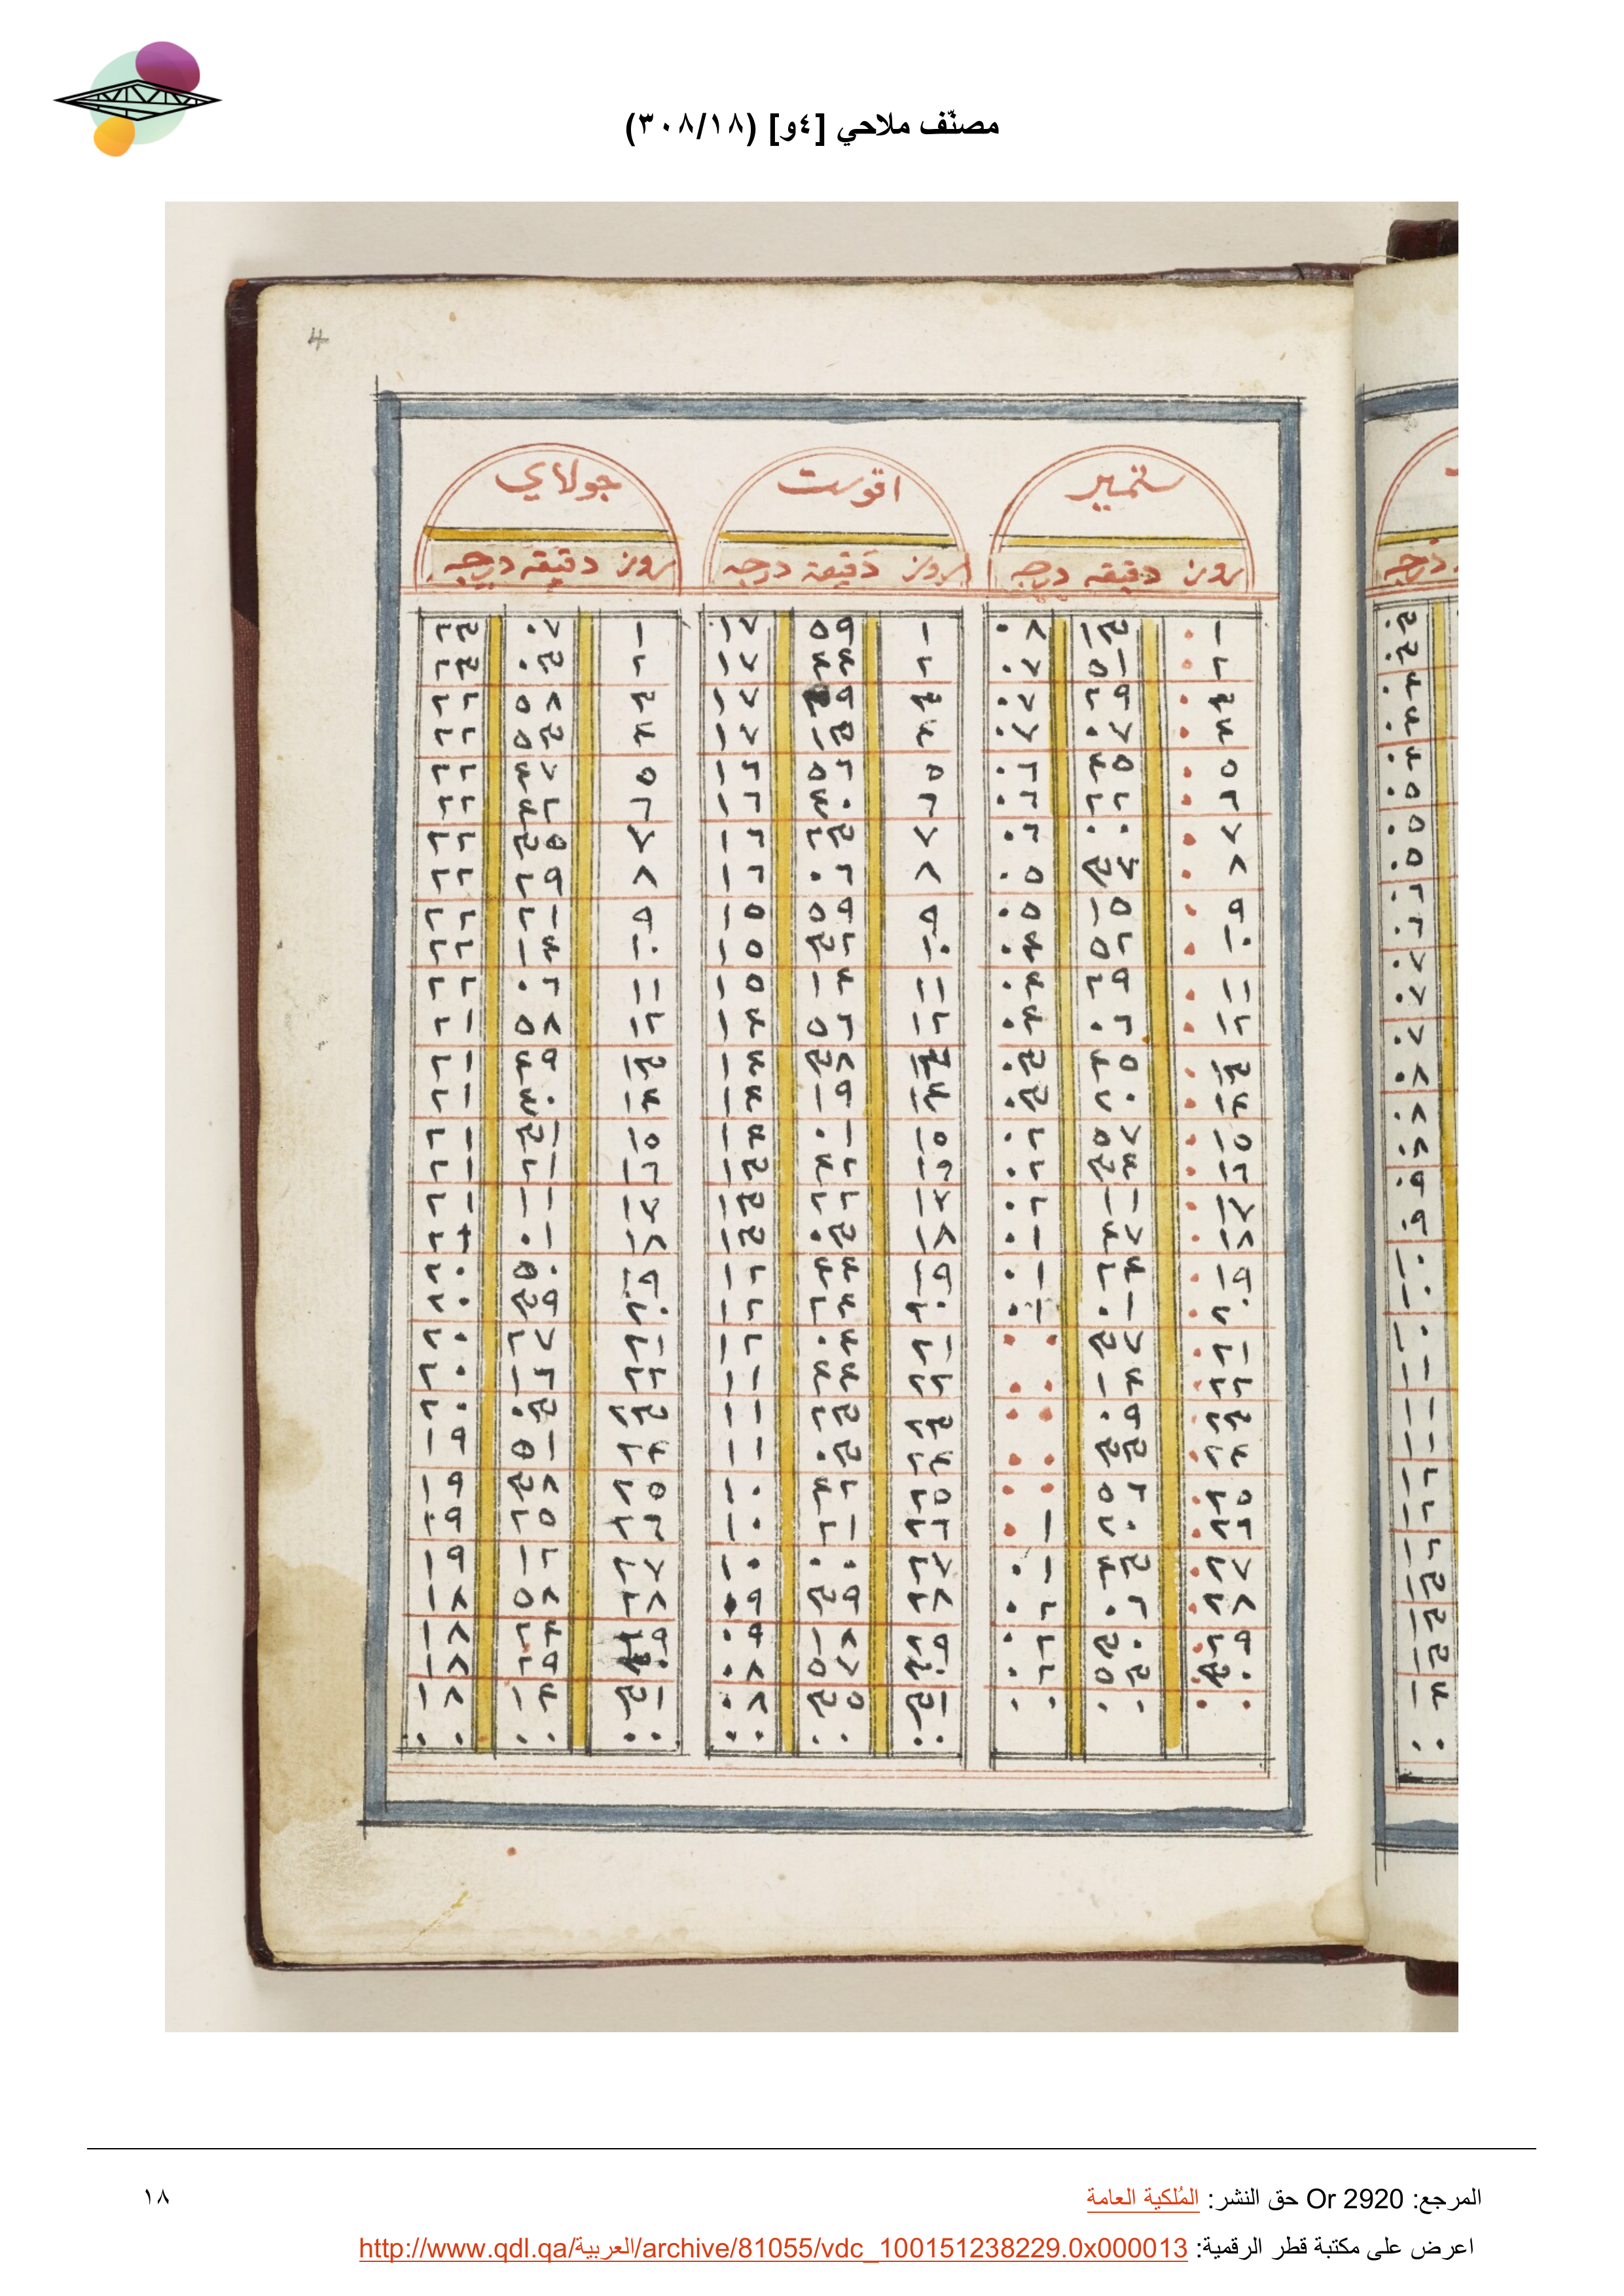 مصنّف ملاحي [٤و] (٣٠٨/١٨)
4
ستمبر اقوست جولاي
روز دقيقه درجه روز دقيقة درجه روز دقيقه درجه
١ ١٣ ٠٨ ١ ٥٩ ١٧ ١ ٠٧ ٢٣
٢ ٥١ ٠٧ ٢ ٤٤ ١٧ ٢ ٠٣ ٢٣
٣ ٢٩ ٠٧ ٣ ٢٩ ١٧ ٣ ٥٨ ٢٢
٤ ٠٧ ٠٧ ٤ ١٣ ١٧ ٤ ٥٣ ٢٢
٥ ٤٥ ٠٦ ٥ ٥٦ ١٦ ٥ ٤٧ ٢٢
٦ ٢٢ ٠٦ ٦ ٤٠ ١٦ ٦ ٤٢ ٢٢
٧ ٠٠ ٠٦ ٧ ٢٣ ١٦ ٧ ٣٥ ٢٢
٨ ٣٧ ٠٥ ٨ ٠٦ ١٦ ٨ ٢٩ ٢٢
٩ ١٥ ٠٥ ٩ ٥٩ ١٥ ٩ ٢١ ٢٢
١٠ ٥٢ ٠٤ ١٠ ٣٢ ١٥ ١٠ ١٤ ٢٢
١١ ٢٩ ٠٤ ١١ ١٤ ١٥ ١١ ٠٦ ٢٢
١٢ ٠٦ ٠٤ ١٢ ٥٦ ١٤ ١٢ ٥٨ ٢١
١٣ ٤٥ ٠٣ ١٣ ٣٨ ١٤ ١٣ ٤٩ ٢١
١٤ ٢٠ ٠٣ ١٤ ١٩ ١٤ ١٤ ٤٠ ٢١
١٥ ٥٧ ٠٢ ١٥ ٠١ ١٤ ١٥ ٣١ ٢١
١٦ ٣٤ ٠٢ ١٦ ٤٢ ١٣ ١٦ ٢١ ٢١
١٧ ١١ ٠٢ ١٧ ٢٢ ١٣ ١٧ ١١ ٢١
١٨ ٤٧ ٠١ ١٨ ٠٣ ١٣ ١٨ ٠١ ٢١
١٩ ٢٤ ٠١ ١٩ ٤٤ ١٢ ١٩ ٥٠ ٢٠
٢٠ ٠١ ٠١ ٢٠ ٢٤ ١٢ ٢٠ ٣٩ ٢٠
٢١ ٣٧ ٠٠ ٢١ ٠٤ ١٢ ٢١ ٢٧ ٢٠
٢٢ ١٤ ٠٠ ٢٢ ٤٤ ١١ ٢٢ ١٦ ٢٠
٢٣ ٠٩ ٠٠ ٢٣ ٢٣ ١١ ٢٣ ٠٣ ٢٠
٢٤ ٣٣ ٠٠ ٢٤ ٠٣ ١١ ٢٤ ٥١ ١٩
٢٥ ٥٦ ٠٠ ٢٥ ٤٢ ١٠ ٢٥ ٣٨ ١٩
٢٦ ٢٠ ٠١ ٢٦ ٢١ ١٠ ٢٦ ٢٥ ١٩
٢٧ ٤٣ ٠١ ٢٧ ٠٠ ١٠ ٢٧ ١٢ ١٩
٢٨ ٠٦ ٠٢ ٢٨ ٣٩ ٠٩ ٢٨ ٥٨ ١٨
٢٩ ٣٠ ٠٢ ٢٩ ١٨ ٠٩ ٢٩ ٢٤ ١٨
٣٠ ٥٣ ٠٢ ٣٠ ٥٧ ٠٨ ٣٠ ٢٩ ١٨
٠ ٠٠ ٠٠ ٣١ ٣٥ ٠٨ ٣١ ١٤ ١٨
٠٠ ٠٠ ٠٠ ٠٠ ٠٠ ٠٠
المرجع: Or 2920 حق النشر: المُلكية العامة
١٨
اعرض على مكتبة قطر الرقمية: http://www.qdl.qa/العربية/archive/81055/vdc_100151238229.0x000013